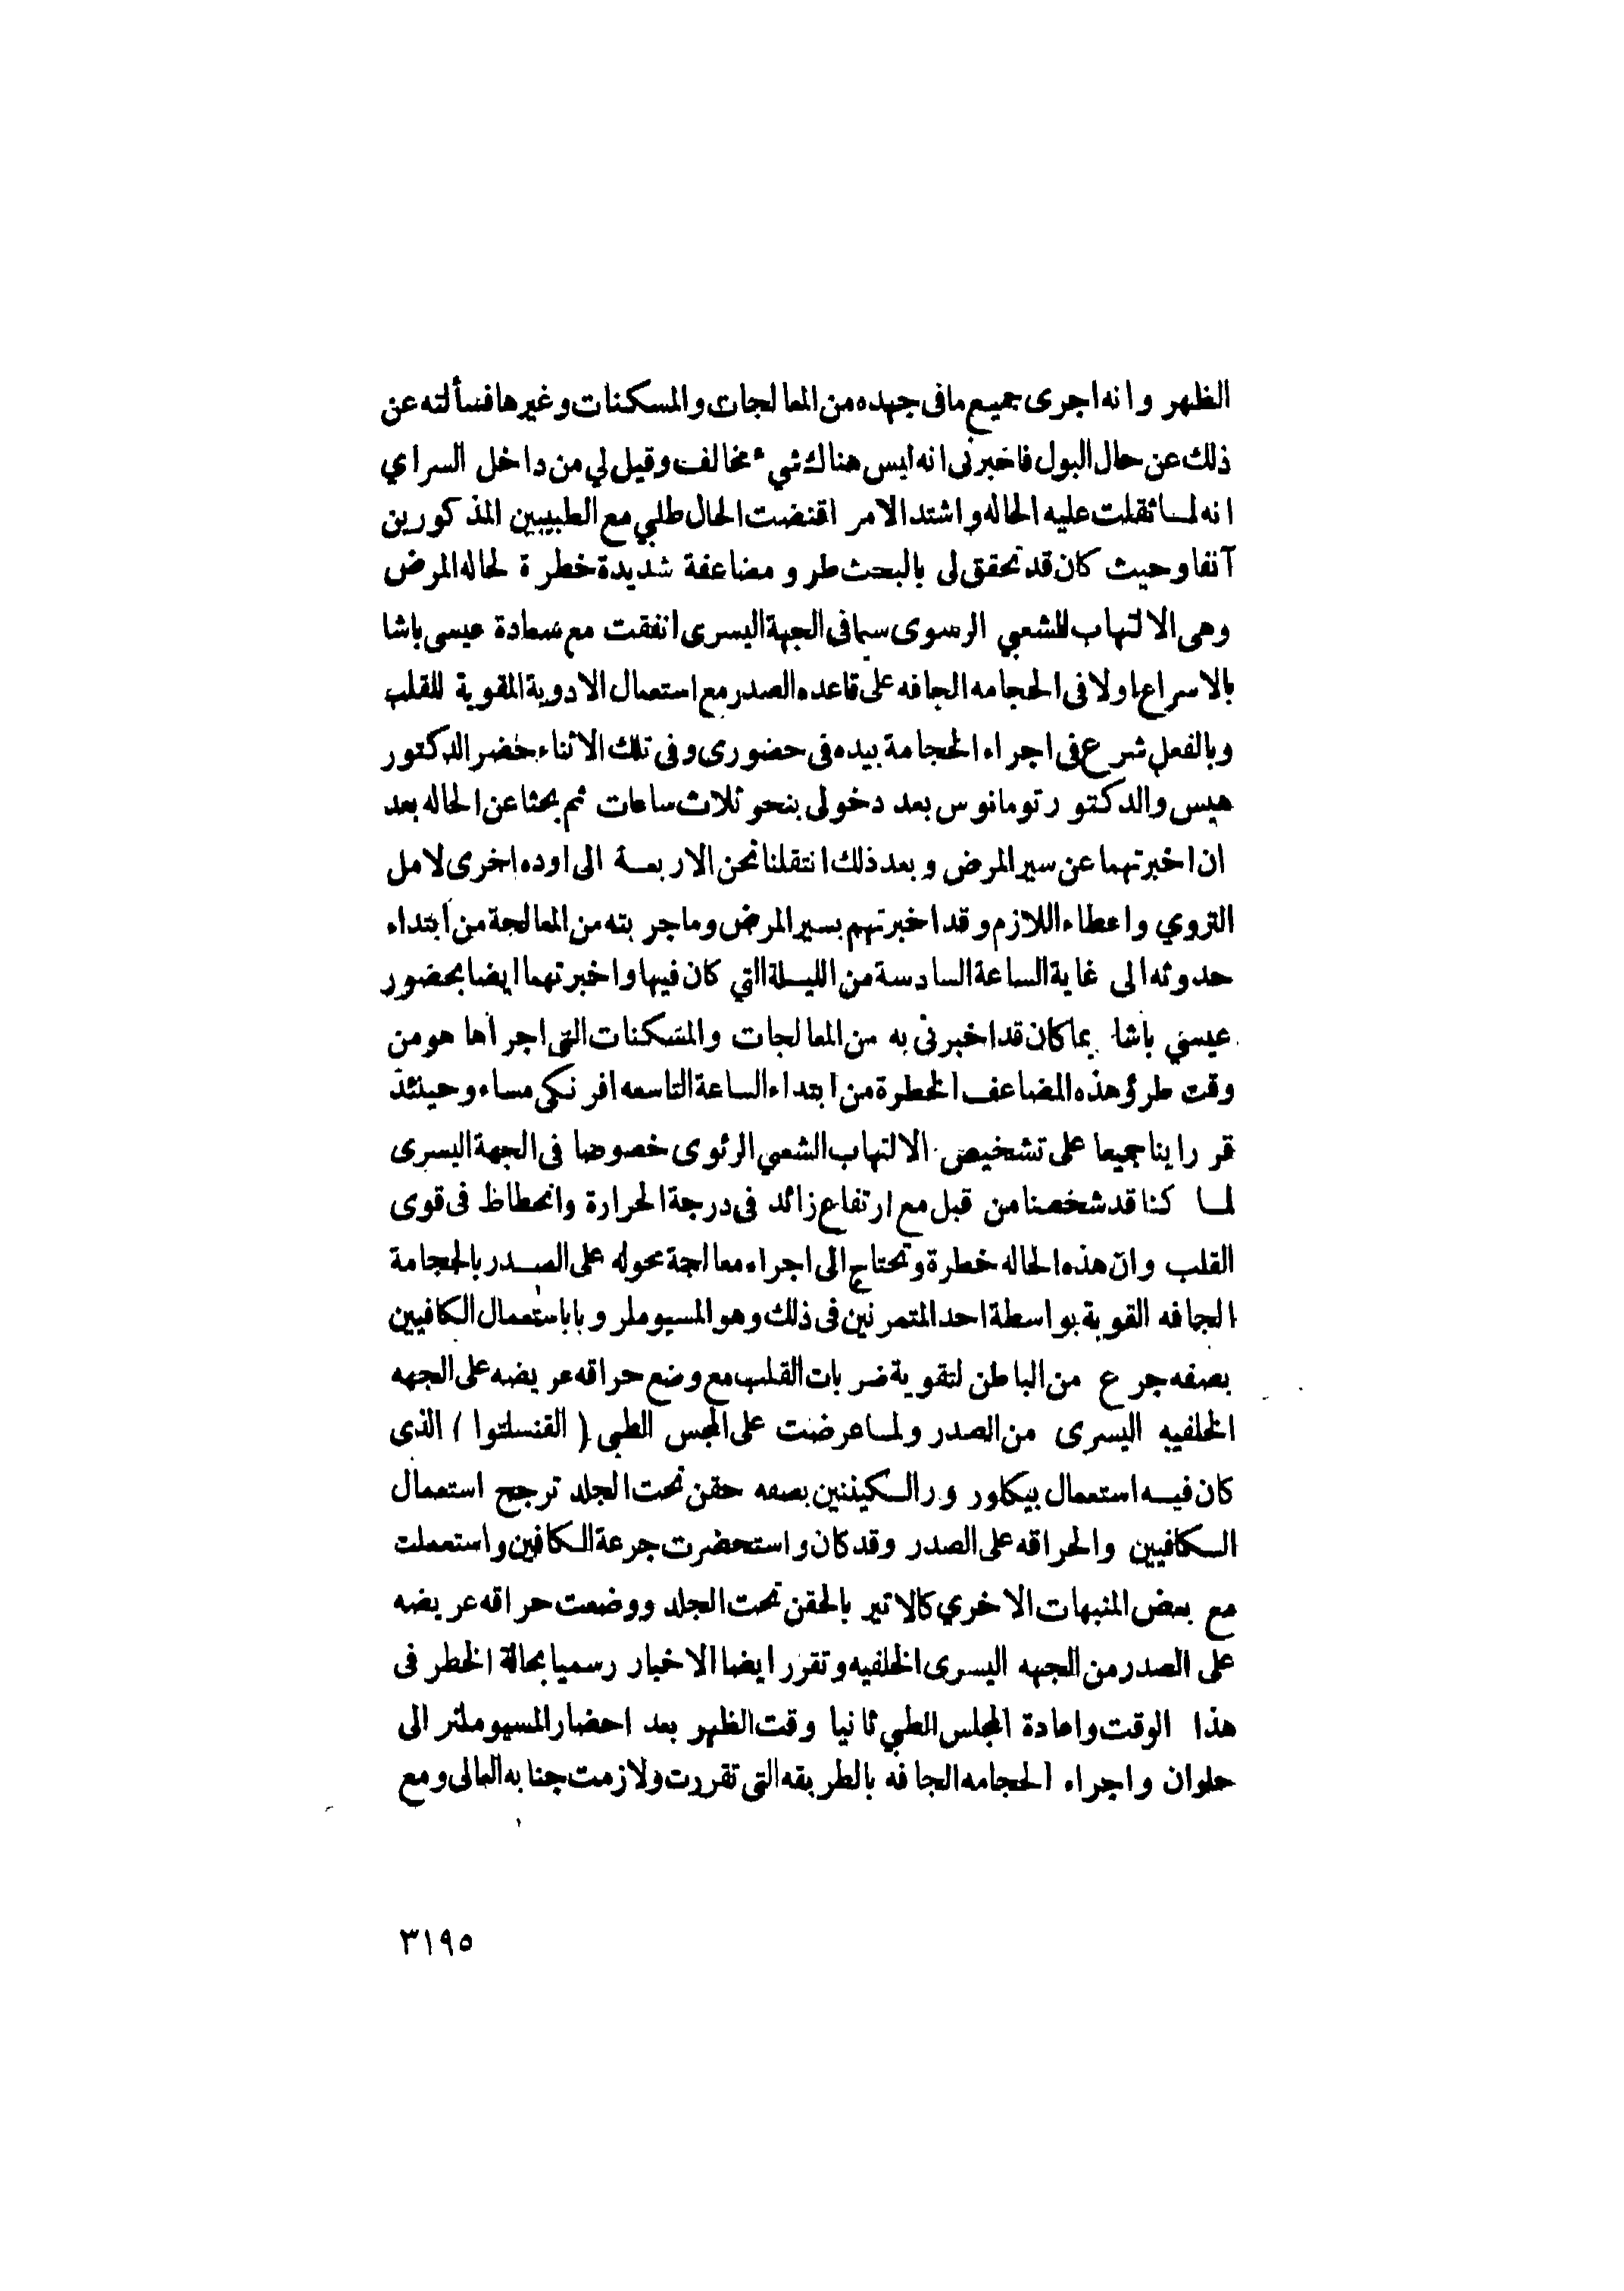 الظهر وانه اجرى جميع مافى جهده من المعالجات والمسكنات وغيرها فسألته عن
ذلك عن حال البول فاخبرنى انه ليس هناك شيء مخالف وقيل لي من داخل السراي
انه لما ثقلت عليه الحاله واشتد الامر اقتضت الحال طلبي مع الطبيبين المذكورين
آنفا وحيث كان قد تحقق لى بالبحث طرو مضاعفة شديدة خطرة لحاله المرض
وهى الالتهاب الشعبي الرسوى سيما فى الجهة اليسرى اتفقت مع سعادة عيسى باشا
بالاسراع اولا فى الحجامه الجافه على قاعده الصدر مع استعمال الادوية المقوية للقلب
وبالفعل شرع فى اجراء الحجامة بيده فى حضورى وفى تلك الاثناء حضر الدكتور
هيس والدكتور تومانوس بعد دخولى بنحو ثلاث ساعات ثم بحثا عن الحاله بعد
ان اخبرتهما عن سير المرض وبعد ذلك انتقلنا نحن الاربعة الى اوده اخرى لامل
التروي واعطاء اللازم وقد اخبرتهم بسير المرض وما جربته من المعالجة من ابتداء
حدوثه الى غاية الساعة السادسة من الليلة التي كان فيها واخبرتهما ايضا بحضور
عيسي باشا بما كان قد اخبرنى به من المعالجات والمسكنات التى اجراها هو من
وقت طرؤ هذه المضاعف الخطرة من ابتداء الساعة التاسعه افرنكى مساء وحينئذ
قر راينا جميعا على تشخيص الالتهاب الشعبي الرئوى خصوصا فى الجهة اليسرى
لما كنا قد شخصنا من قبل مع ارتفاع زائد فى درجة الحرارة وانحطاط فى قوى
القلب وان هذه الحاله خطرة وتحتاج الى اجراء معالجة محوله على الصدر بالحجامة
الجافه القوية بواسطة احد المتمرنين فى ذلك وهو المسيو ملر وباباستعمال الكافيين
بصفه جرع من الباطن لتقوية ضربات القلب مع وضع حراقه عريضه على الجهه
الخلفيه اليسرى من الصدر ولما عرضت على المجس الطبى (القنسلتوا) الذى
كان فيه استعمال بيكلور ور الكينين بصفه حقن تحت الجلد ترجح استعمال
الكافيين والحراقه على الصدر وقد كان واستحضرت جرعة الكافين واستعملت
مع بعض المنبهات الاخري كالاتير بالحقن تحت الجلد ووضعت حراقه عريضه
على الصدر من الجهه اليسرى الخلفيه وتقرر ايضا الاخبار رسميا بحالة الخطر فى
هذا الوقت واعادة المجلس الطبي ثانيا وقت الظهر بعد احضار المسيو ملتر الى
حلوان واجراء الحجامه الجافه بالطريقه التى تقررت ولازمت جنابه العالى ومع
٣١٩٥